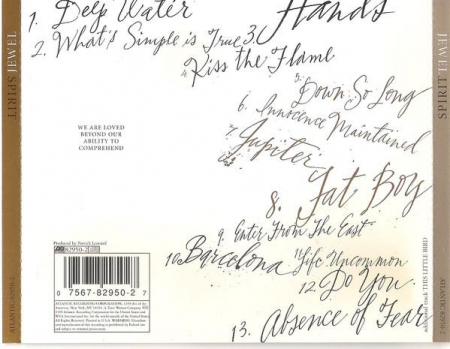 1. Deep Water
2. What's Simple is True
3. Hands
4. Kiss the Flame
5. Down So Long
6. Innocence Maintained
7. Jupiter
8. Fat Boy
9. Enter From The East
10. Barcelona
11. Life Uncommon
12. Do You
13. Absence of Fear
WE ARE LOVED
BEYOND OUR
ABILITY TO
COMPREHEND
Produced by Patrick Leonard
82950-2
0 7567-82950-2 7
JEWEL SPIRIT
ATLANTIC 82950-2
SPIRIT JEWEL
additional track THIS LITTLE BIRD
ATLANTIC 82950-2